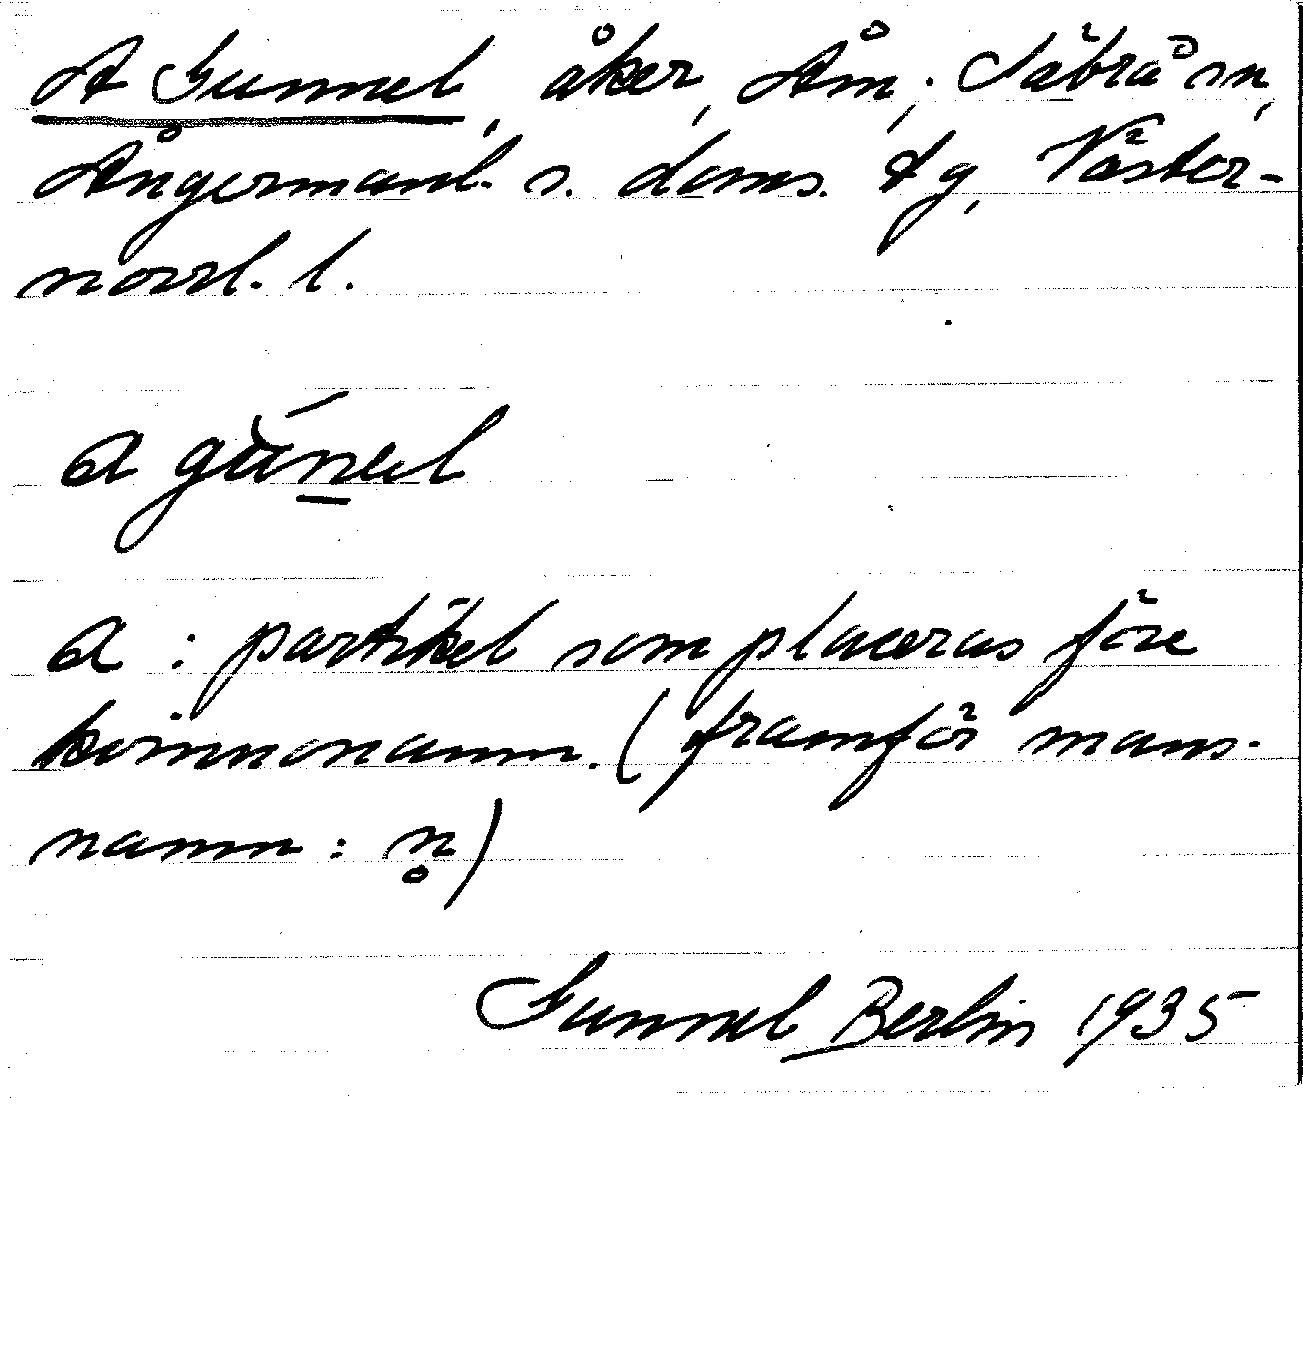 A Gunnel, åker, Åm, Säbrå sn,
Ångermanl. s. doms. tg, Väster-
norrl. l.
a gu̇́n̲el
a : partikel som placeras före
kvinnonamn. (framför mans-
namn : n̥)
Gunnel Berlin 1935